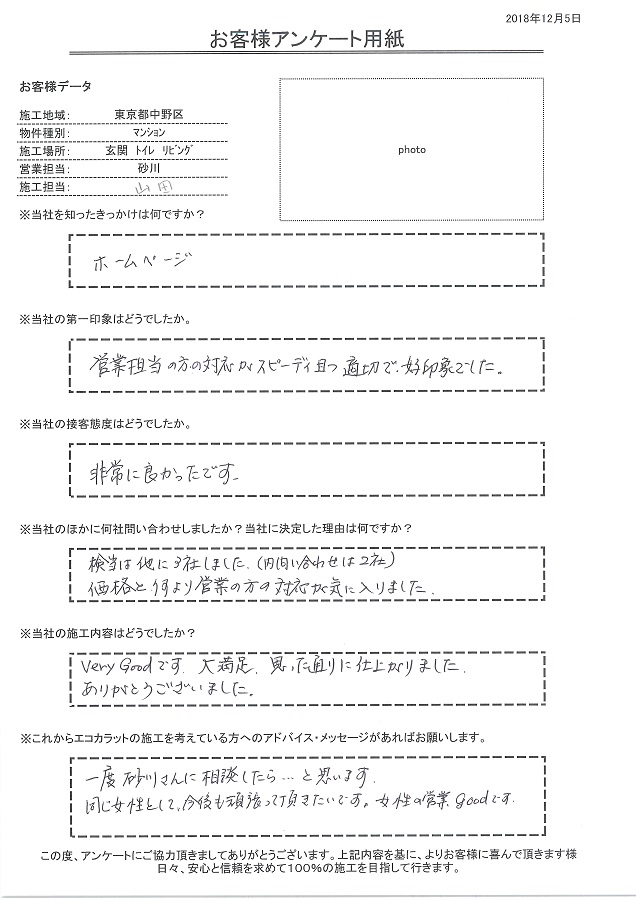 2018年12月5日
お客様アンケート用紙
お客様データ
施工地域: 東京都中野区
物件種別: マンション
施工場所: 玄関 トイレ リビング
営業担当: 砂川
施工担当: 山田
photo
※当社を知ったきっかけは何ですか？
ホームページ
※当社の第一印象はどうでしたか。
営業担当の方の対応がスピーディ且つ適切で、好印象でした。
※当社の接客態度はどうでしたか。
非常に良かったです。
※当社のほかに何社問い合わせしましたか？当社に決定した理由は何ですか？
検討は他に3社しました。(問い合わせは2社)
価格と何より営業の方の対応が気に入りました。
※当社の施工内容はどうでしたか？
Very Goodです。大満足、思った通りに仕上がりました。
ありがとうございました。
※これからエコカラットの施工を考えている方へのアドバイス・メッセージがあればお願いします。
一度砂川さんに相談したら…と思います。
同じ女性として、今後も頑張って頂きたいです。女性の営業Goodです。
この度、アンケートにご協力頂きましてありがとうございます。上記内容を基に、よりお客様に喜んで頂きます様
日々、安心と信頼を求めて100％の施工を目指して行きます。